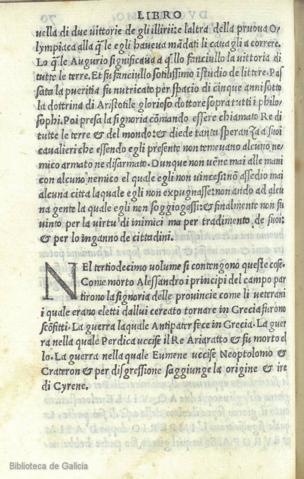 LIBRO
uella di due uittorie de gli illirii: e laltra della pruoua O
lympiaca alla q̃le egli haueua mãdati li cauagli a correre.
Lo q̃le Augurio significaua a q̃llo fanciullo la uittoria di
tutte le terre. Et fu fanciullo sotilissimo i studio de littere. Pas
sata la pueritia fu nutricato per spacio di cinque anni sotto
la dottrina di Aristotile glorioso dottore sopra tutti i philo-
sophi. Poi presa la signoria cõmando essere chiamato Re di
tutte le terre & del mondo: & diede tanta speranza a suoi
caualieri che essendo egli presente non temeuano alcuno ne-
mico armato ne disarmato. Dunque non uẽne mai alle mani
con alcuno nemico el quale egli non uincesse: nõ assedio mai
alcuna citta laquale egli non expugnasse: non ando ad alcu
na gente la quale egli non soggiogassi: & finalmente non fu
uinto per la uirtu di inimici ma per tradimento de suoi:
& per lo inganno de cittadini.
NEl tertiodecimo uolume si contengono queste cose.
Come morto Alessandro i principi del campo par
tirono la signoria delle prouincie come li ueterani
i quali erano eletti dallui cercato tornare in Grecia furono
scõfitti. La guerra laquale Antipater fece in Grecia. La guer
ra nella quale Perdica uccise il Re Ariaratto & fu morto el
lo. La guerra nella quale Eumene uccise Neoptolomo &
Crateron & per disgressione saggiunge la origine & ire
di Cyrene.
Biblioteca de Galicia